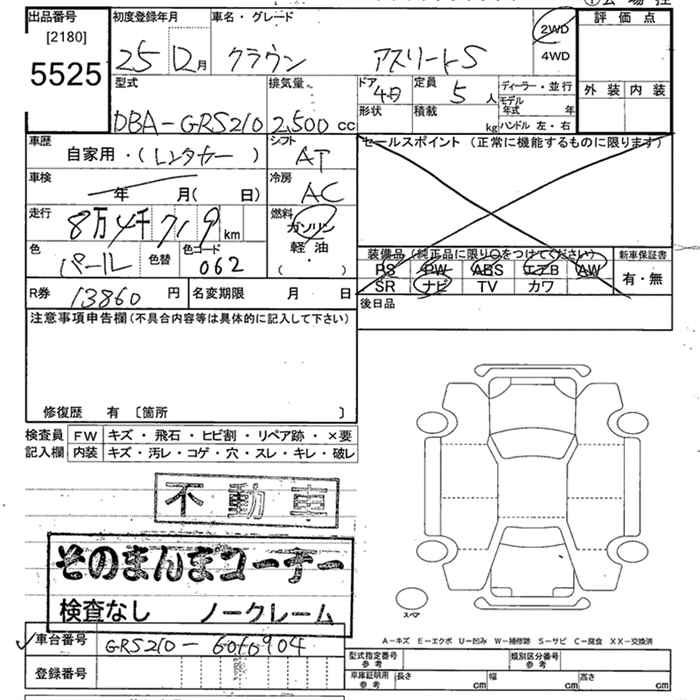 出品番号
[2180]
5525
初度登録年月
25 12月
車名・グレード
クラウン アスリートS
2WD
4WD
評価点
外装 内装
型式
DBA-GRS210
排気量
2,500cc
ドア
4D
形状
定員
5人
積載
kg
ディーラー・並行
モデル年式 年
ハンドル 左・右
車歴
自家用・(レンタカー)
シフト
AT
セールスポイント(正常に機能するものに限ります)
車検
年 月( 日)
冷房
AC
走行
8万4千719km
燃料
ガソリン
軽油
( ・ )
色
パール
色替
色コード
062
装備品(純正品に限り○をつけてください)
PS PW ABS エアB AW
SR ナビ TV カワ
新車保証書
有・無
R券
13860円
名変期限 月 日
後日品
注意事項申告欄(不具合内容等は具体的に記入して下さい)
修復歴 有 〔箇所 〕
検査員 FW キズ・飛石・ヒビ割・リペア跡・×要
記入欄 内装 キズ・汚レ・コゲ・穴・スレ・キレ・破レ
不動車
そのまんまコーナー
検査なし ノークレーム
スペア
A-キズ E-エクボ U-凹み W-補修跡 S-サビ C-腐食 XX-交換済
車台番号
GRS210-6010904
登録番号
型式指定番号 参考
類別区分番号 参考
車庫証明用 参考
長さ cm
幅 cm
高さ cm